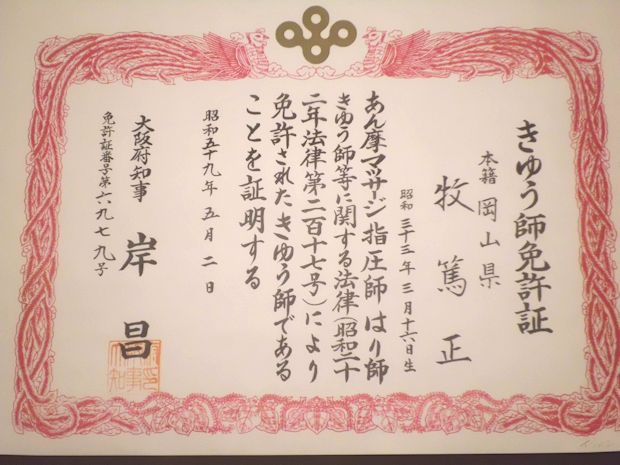 きゆう師免許証
本籍 岡山県
牧 篤 正
昭和 三十三年 三月 十六日生
あん摩マッサージ指圧師 はり師
きゆう師等に関する法律(昭和二十
二年法律第二百十七号)により
免許されたきゆう師である
ことを証明する
昭和五十九年 五月 二日
大阪府知事 岸 昌
免許証番号第六九七九号